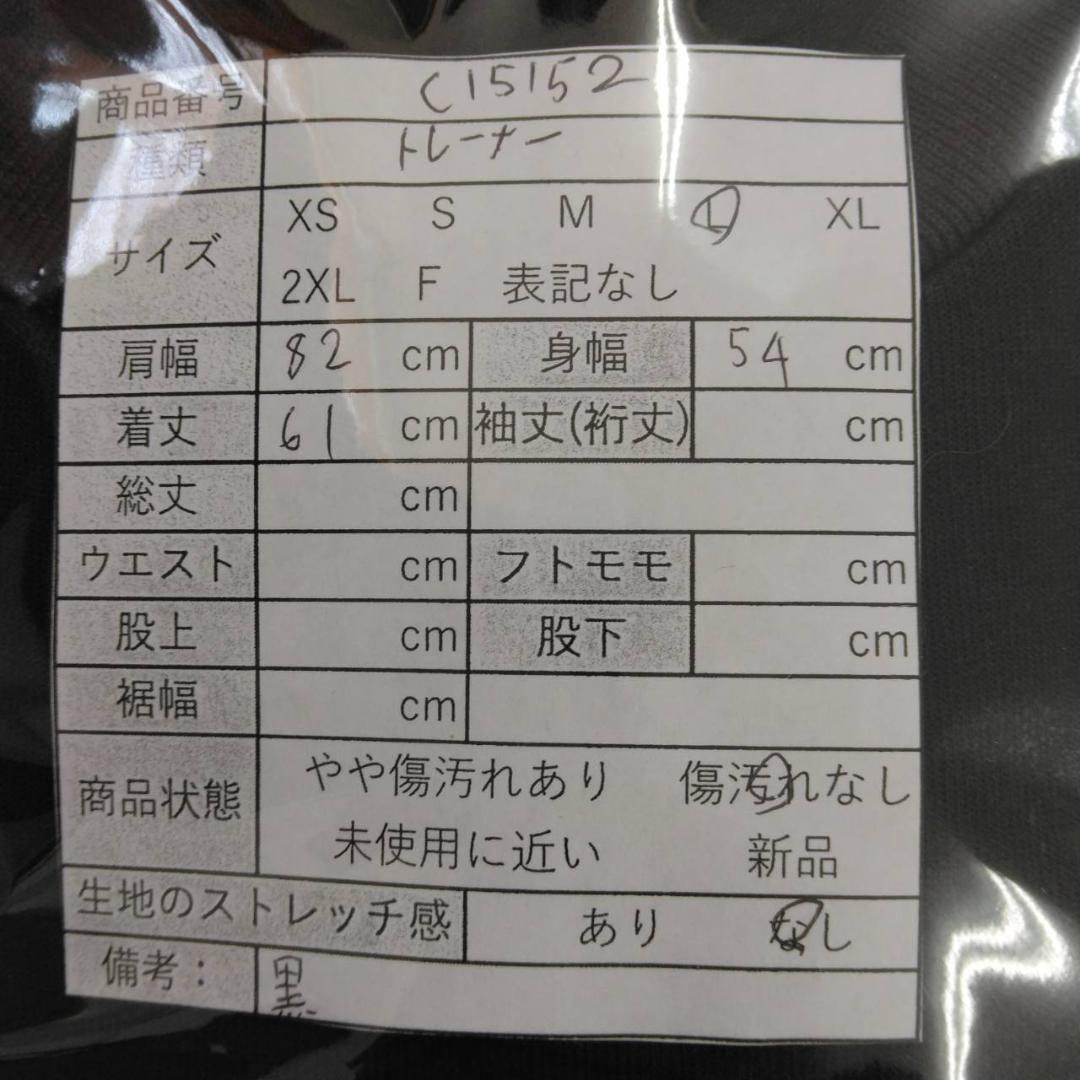 商品番号 C15152
種類 トレーナー
サイズ XS S M L XL
2XL F 表記なし
肩幅 82 cm 身幅 54 cm
着丈 61 cm 袖丈(裄丈) cm
総丈 cm
ウエスト cm フトモモ cm
股上 cm 股下 cm
裾幅 cm
商品状態 やや傷汚れあり 傷汚れなし
未使用に近い 新品
生地のストレッチ感 あり なし
備考： 黒